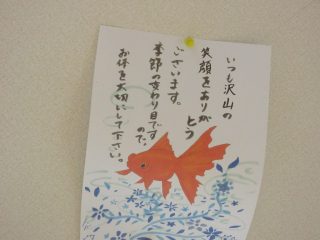 いつも沢山の
笑顔をありがとう
ございます。
季節の変わり目ですので、
お体を大切にして下さい。